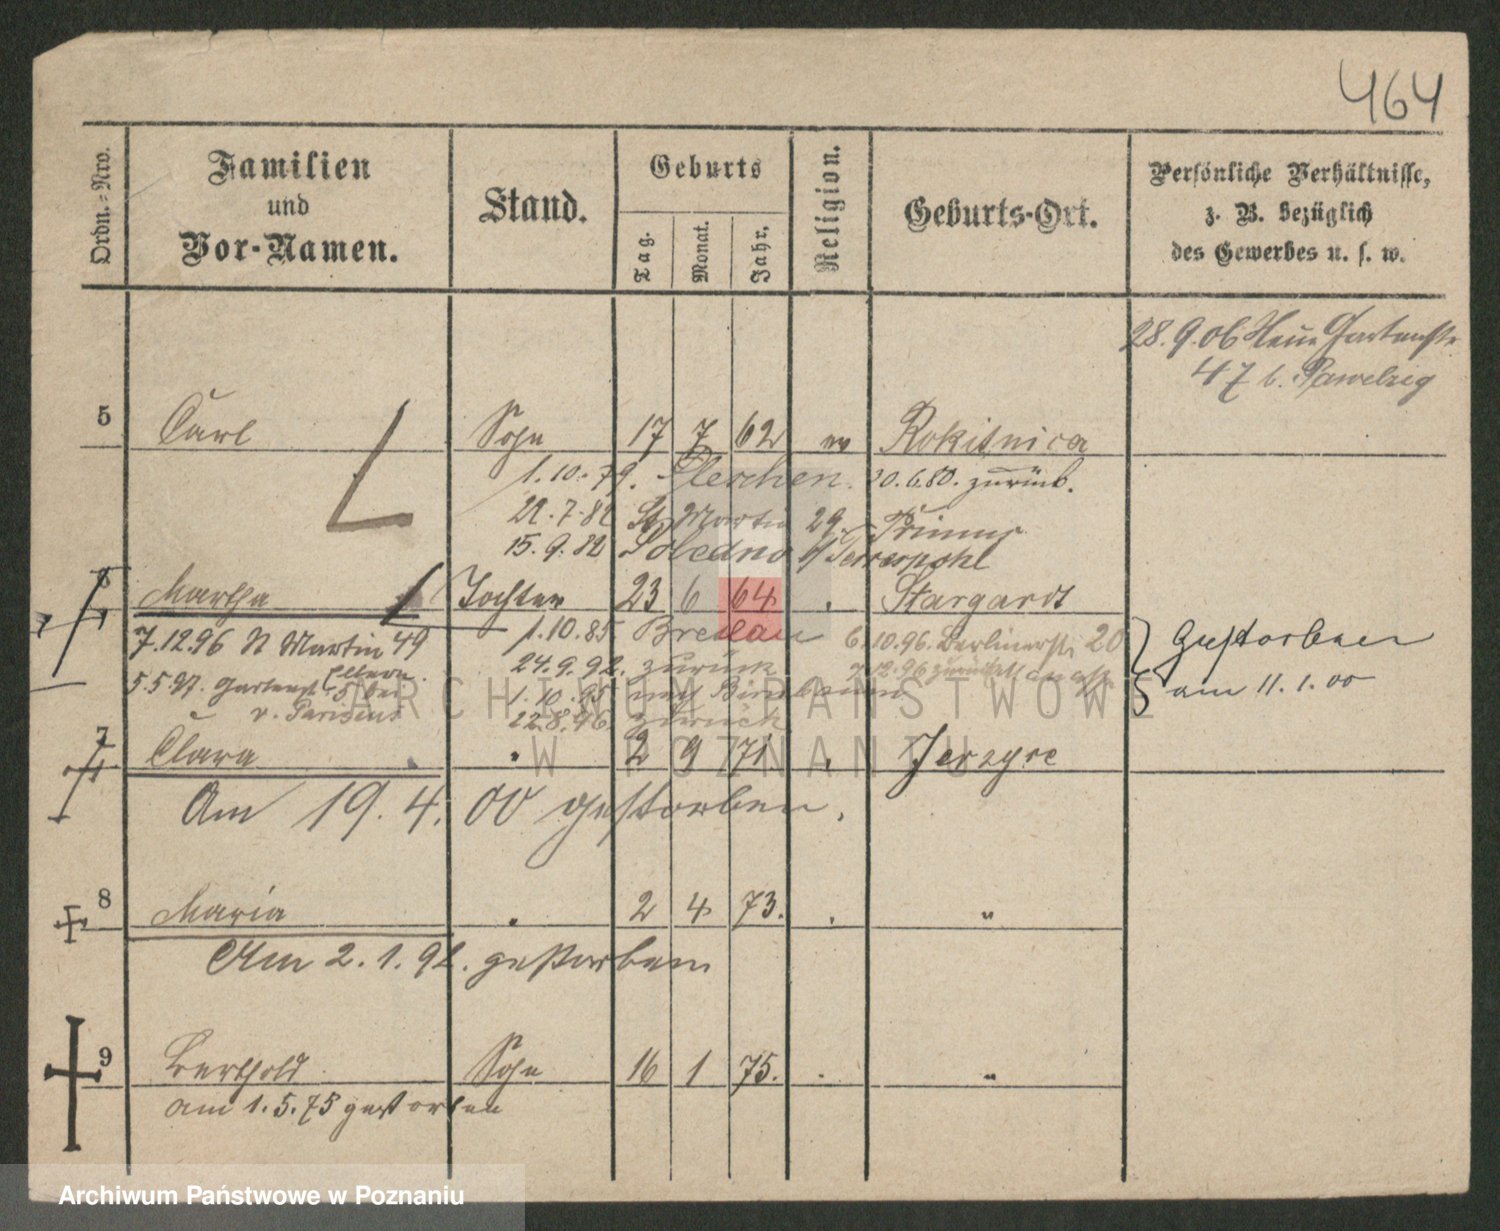 464
Ordn.-Nro.
Familien
und
Vor-Namen.
Stand.
Geburts
Tag.
Monat.
Jahr.
Religion.
Geburts-Ort.
Persönliche Verhältnisse,
z. B. bezüglich
des Gewerbes u. s. w.
28.9.06 Neue Gartenstr
47 b. Pawelzig
5 Carl Sohn 17 7 62 ev Rokitnica
1.10.79. Pleschen. 30.6.80. zurück.
22.7.82 St Martin 29.
15.9.82
6 Martha Tochter 23 6 64 . Stargardt
7.12.96 St Martin 49 1.10.85 Breslau 6.10.96. Berlinerstr 20
gestorben
24.9.92. zurück 7.12.96 zurück
am 11.1.00
5.5.97. Gartenstr 5 bei Eltern.
1.10.95 nach Birnbaum
22.8.96. zurück
7 Clara " 2 9 71 . Jerzyce
Am 19.4.00 gestorben.
8 Maria " 2 4 73. . "
Am 2.1.92. gestorben
9 Berthold Sohn 16 1 75. . "
am 1.5.75 gestorben
ARCHIWUM PAŃSTWOWE
W POZNANIU
Archiwum Państwowe w Poznaniu